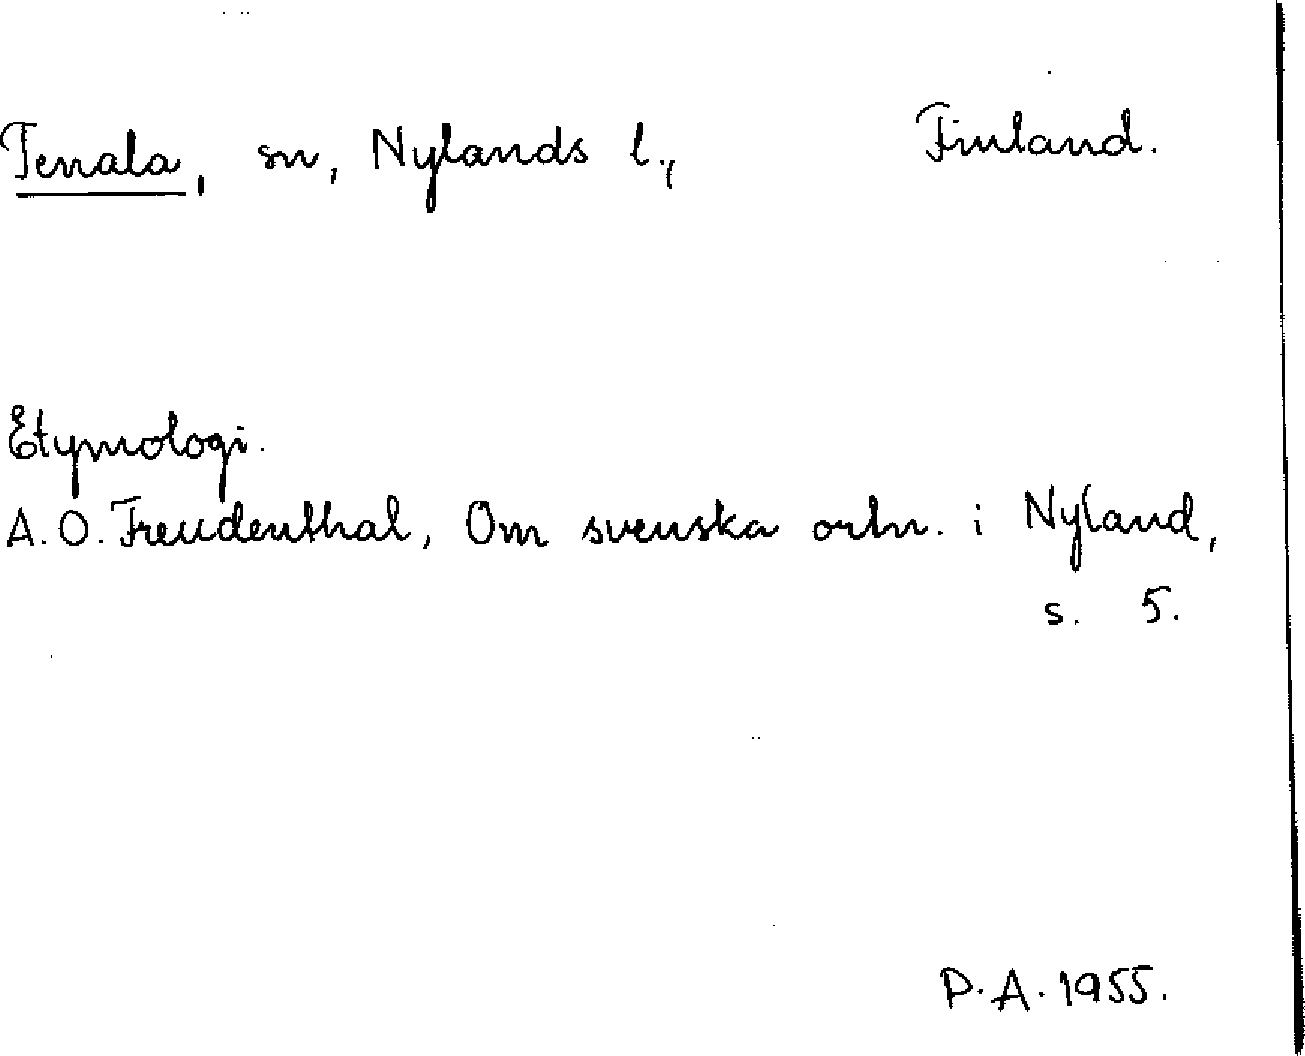 Tenala, sn, Nylands l., Finland.
Etymologi.
A. O. Freudenthal, Om svenska ortn. i Nyland,
s. 5.
P. A. 1955.